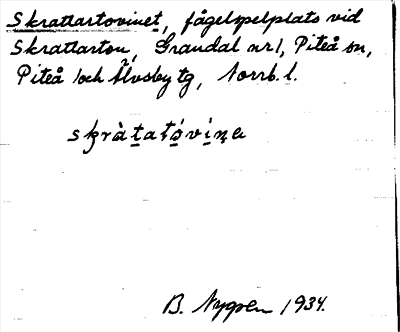 Skrattartovinet, fågelspelplats vid
Skrattarton, Grandal nr 1, Piteå sn,
Piteå och Älvsby tg, Norrb. l.
skràtatóvíne
B. Nygren 1934.